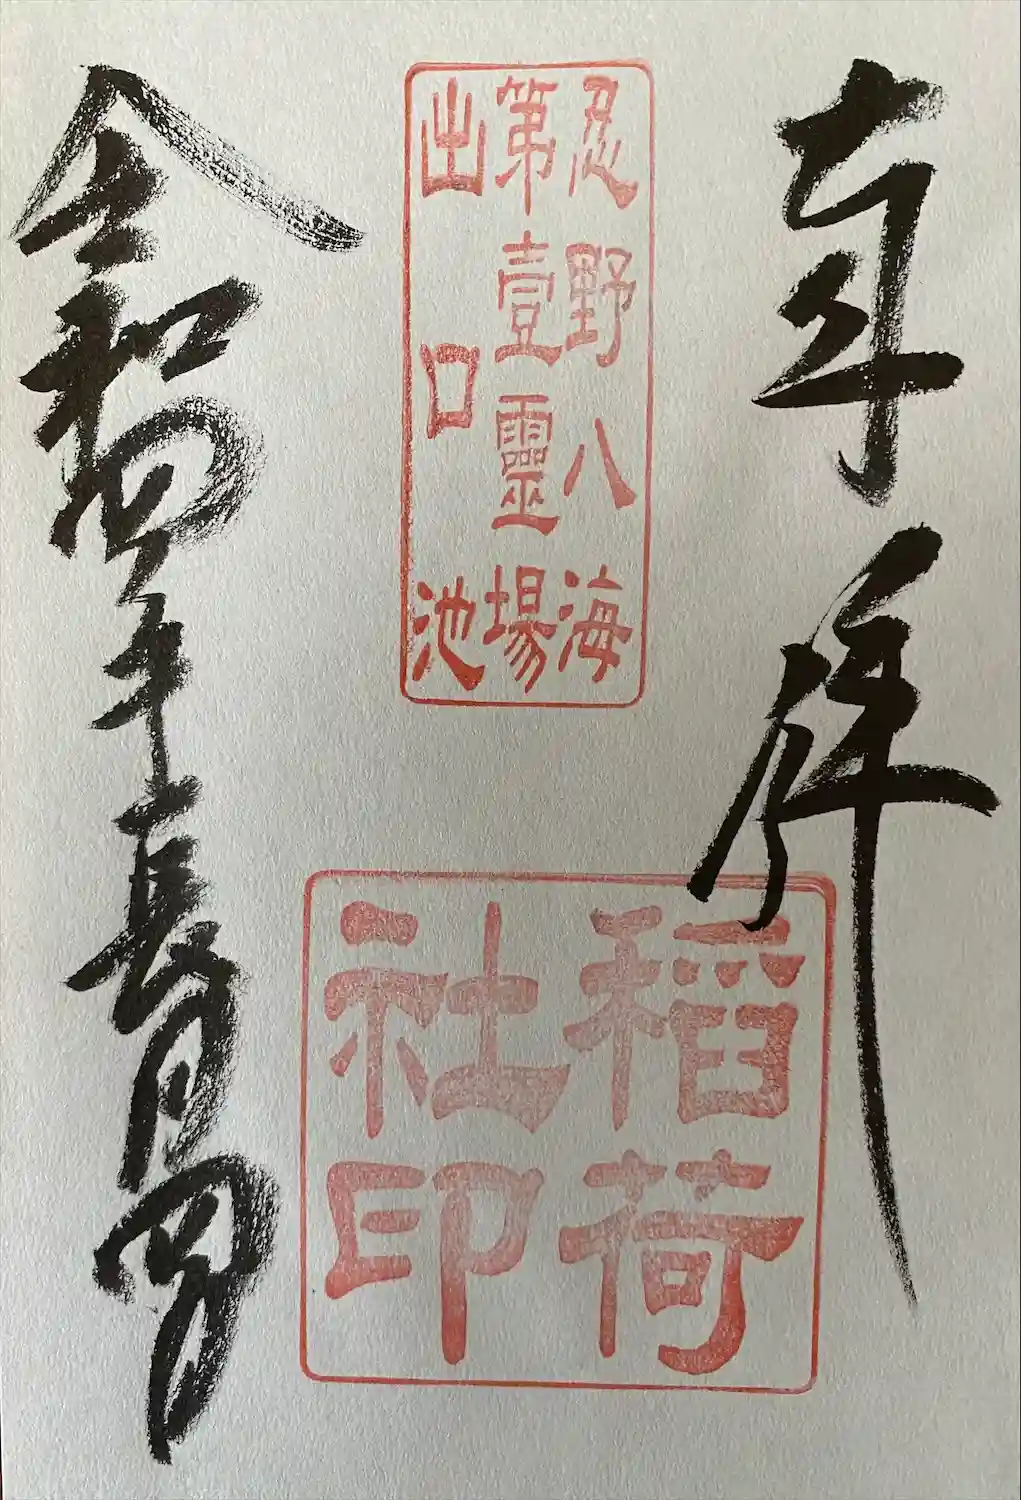 奉拝
忍野八海
第壹靈場
出口池
稲荷
社印
令和四年長月四日